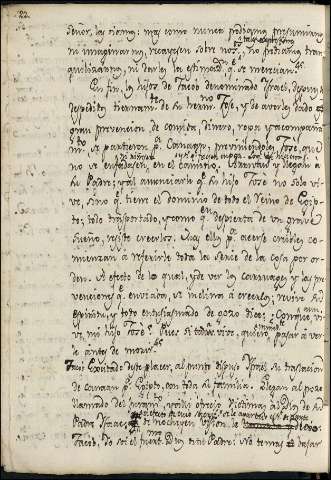 22
Señor, las sirvió; mas como nunca podíamos presumirnos
ni imaginarnos, recayesen sobre nos. No podíamos tran
quilizarnos, ni darles la estimaon. qe. se merecían.
En fin, los hijos de Jacob denominado Israel, despues
despedirse de su hermno. José, y de averles dado
gran prevencion de comida, dinero, ropa y acompaña
mto. se partieron pa. Canaan, previniendoles José, que
no se enojassen, en el camino. y llegan á
su Padre; y al anunciarle qe. su hijo José no solo vi
ve, sino qe. tiene el dominio de todo el Reino de Egip-
to; todo trasportado, y como qe. despierta de un grave
sueño, resiste creerlos. Mas ellos pa. acerse creibles co-
mienzan á referirle toda la serie de la cosa por or-
den. A efecto de lo qual, y de ver los carruages y las pre
venciones qe. enviava, se inclina á creerlo; revive su
espíritu, y todo entusiasmado de gozo dice: Conque vi-
ve, mi hijo José? Pues si todavía vive, quiero pasar á ver
le antes de morir.
Jacob deste placer, al punto dispuso su traslacion
de Canaan pa. Egipto, con toda su familia. Llegan al pozo
llamado del Juramto. ofreció Victimas al Dios de su
Padre Isaac; de noche en vision
Jacob, Yo soi el fuerte Dios de tu Padre: No temas bajar